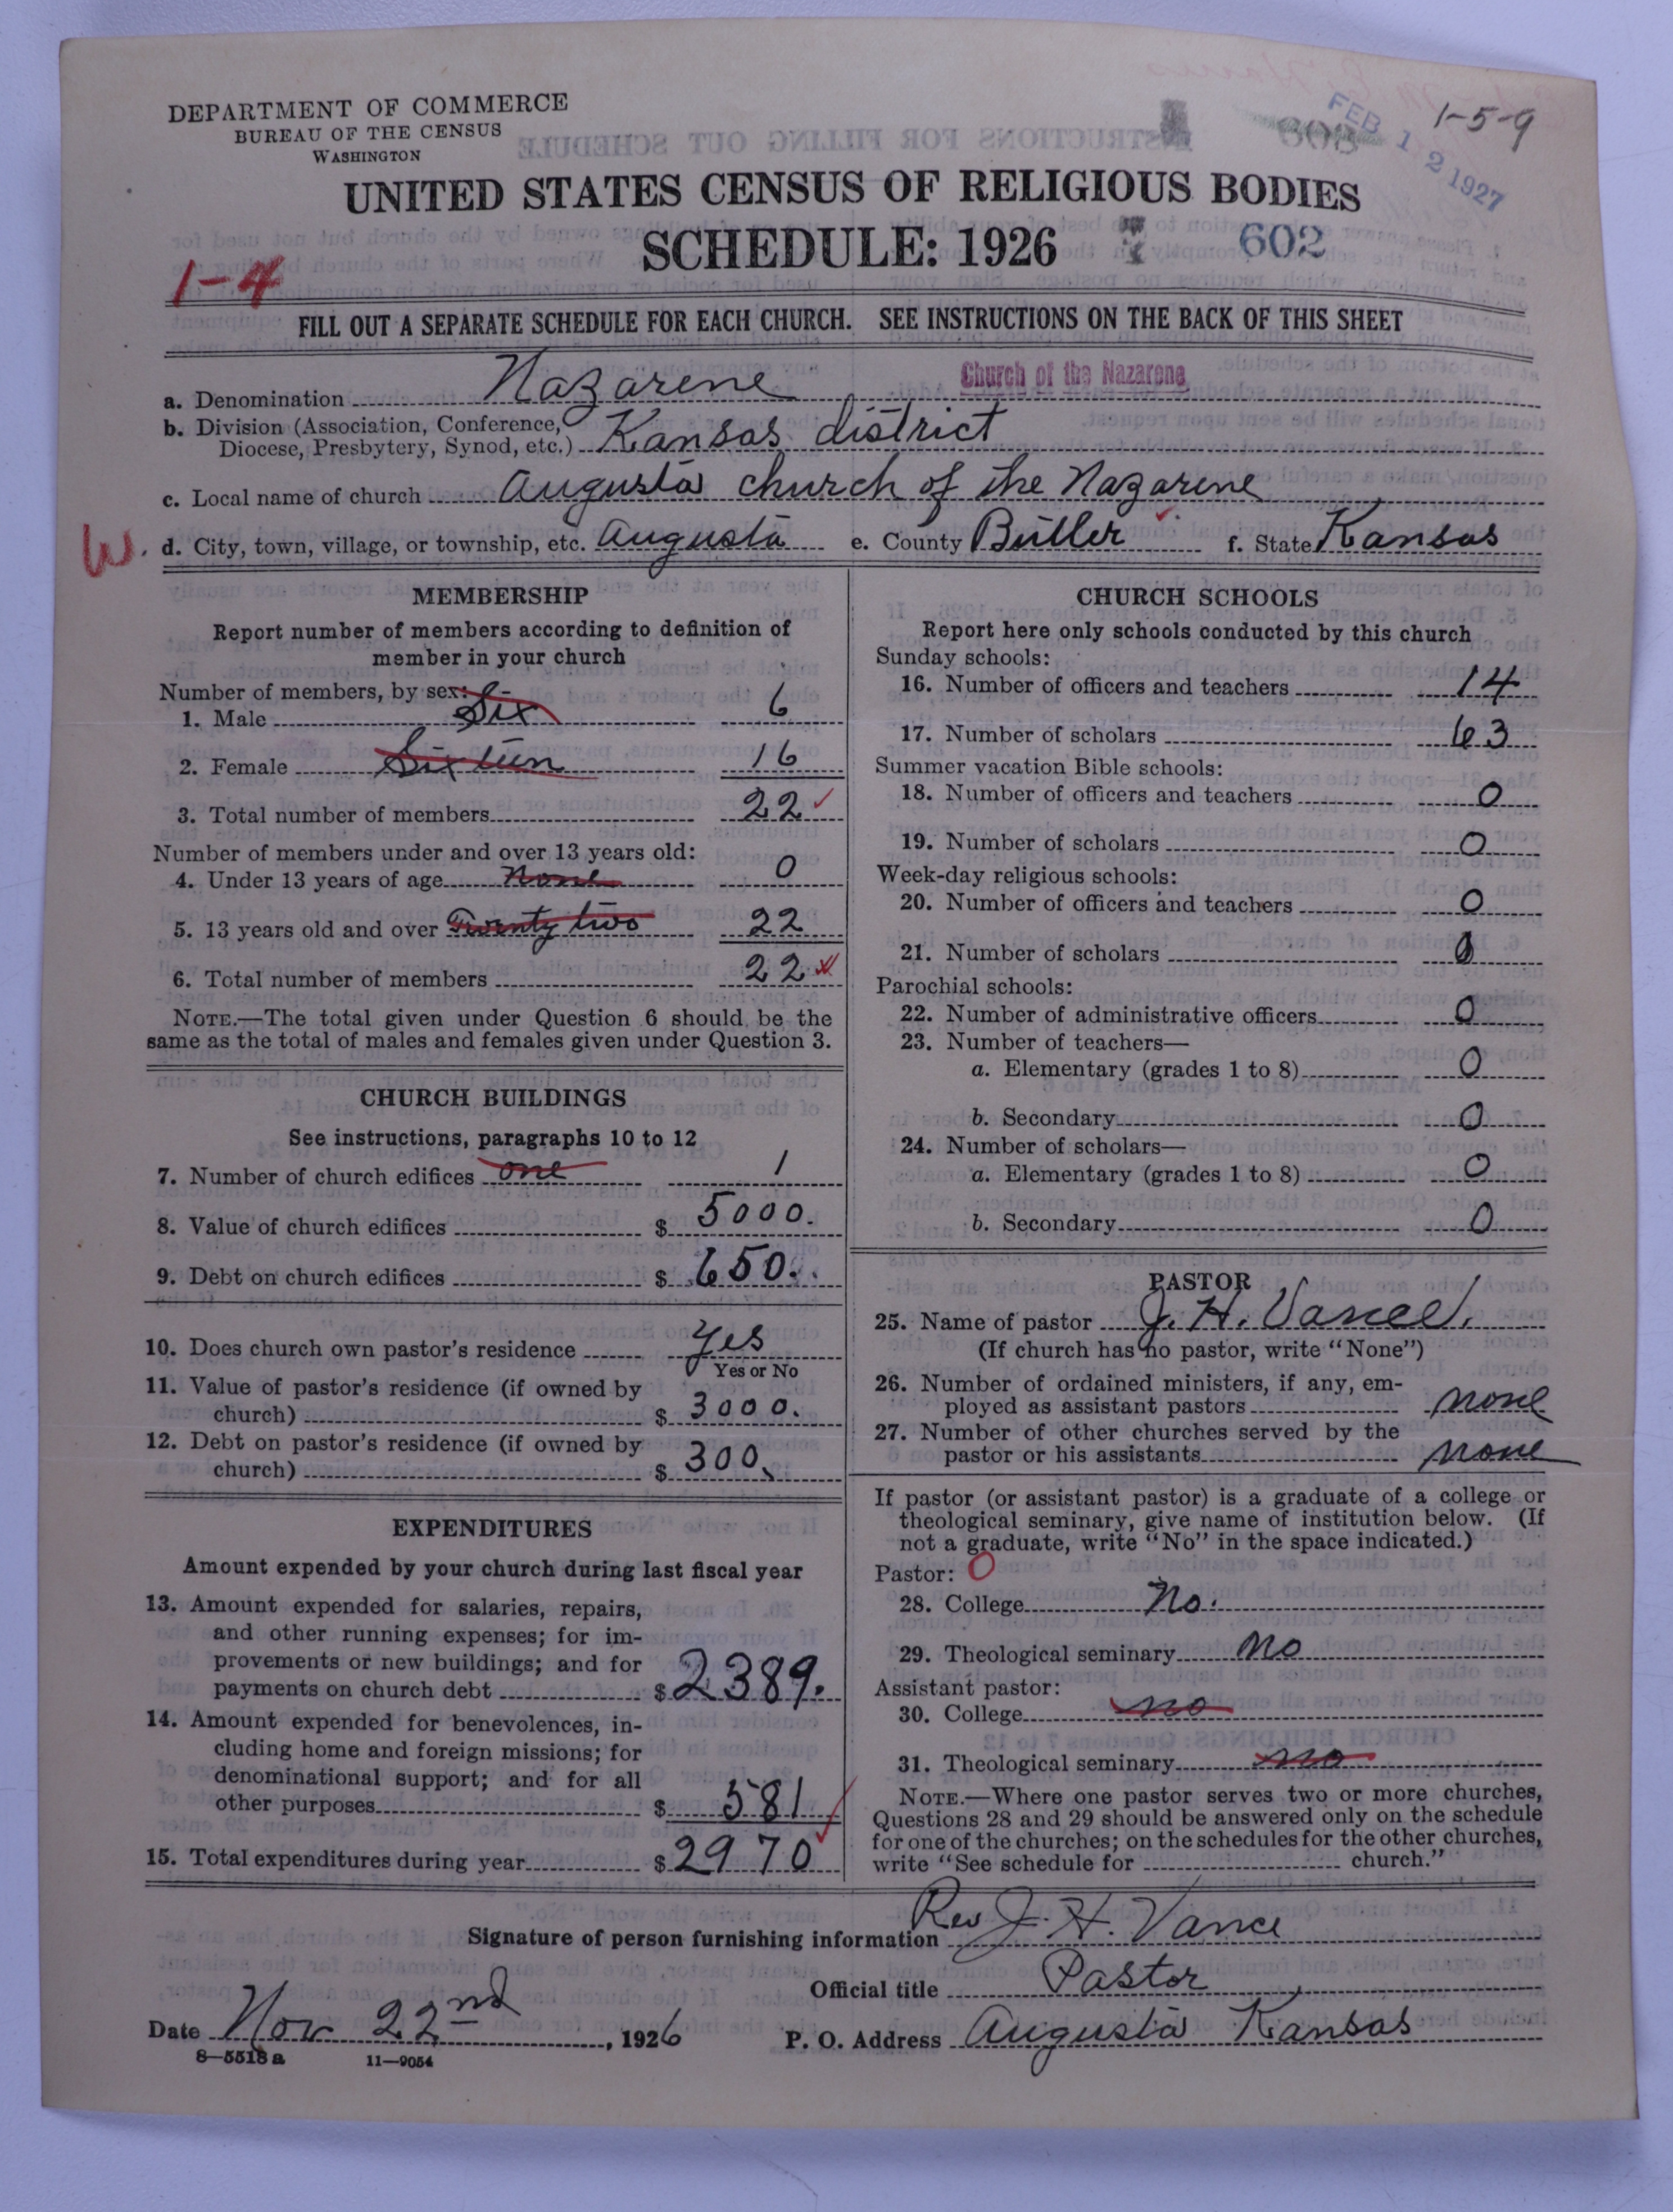 DEPARTMENT OF COMMERCE
BUREAU OF THE CENSUS
WASHINGTON
FEB 12 1927
1-5-9
UNITED STATES CENSUS OF RELIGIOUS BODIES
SCHEDULE: 1926
602
1-4
FILL OUT A SEPARATE SCHEDULE FOR EACH CHURCH. SEE INSTRUCTIONS ON THE BACK OF THIS SHEET
a. Denomination Nazarene Church of the Nazarene
b. Division (Association, Conference,
Diocese, Presbytery, Synod, etc.) Kansas district
c. Local name of church Augusta church of the Nazarene
W. d. City, town, village, or township, etc. Augusta e. County Butler f. State Kansas
MEMBERSHIP
Report number of members according to definition of
member in your church
Number of members, by sex:
1. Male Six 6
2. Female Sixteen 16
3. Total number of members 22
Number of members under and over 13 years old:
4. Under 13 years of age none 0
5. 13 years old and over Twenty two 22
6. Total number of members 22
NOTE.—The total given under Question 6 should be the
same as the total of males and females given under Question 3.
CHURCH BUILDINGS
See instructions, paragraphs 10 to 12
7. Number of church edifices one 1
8. Value of church edifices $ 5000.
9. Debt on church edifices $ 650.
10. Does church own pastor's residence Yes
Yes or No
11. Value of pastor's residence (if owned by
church) $ 3000.
12. Debt on pastor's residence (if owned by
church) $ 300.
EXPENDITURES
Amount expended by your church during last fiscal year
13. Amount expended for salaries, repairs,
and other running expenses; for im-
provements or new buildings; and for
payments on church debt $ 2389.
14. Amount expended for benevolences, in-
cluding home and foreign missions; for
denominational support; and for all
other purposes $ 581
15. Total expenditures during year $ 2970
CHURCH SCHOOLS
Report here only schools conducted by this church
Sunday schools:
16. Number of officers and teachers 14
17. Number of scholars 63
Summer vacation Bible schools:
18. Number of officers and teachers 0
19. Number of scholars 0
Week-day religious schools:
20. Number of officers and teachers 0
21. Number of scholars 0
Parochial schools:
22. Number of administrative officers 0
23. Number of teachers—
a. Elementary (grades 1 to 8) 0
b. Secondary 0
24. Number of scholars—
a. Elementary (grades 1 to 8) 0
b. Secondary 0
PASTOR
25. Name of pastor J. H. Vance.
(If church has no pastor, write "None")
26. Number of ordained ministers, if any, em-
ployed as assistant pastors none
27. Number of other churches served by the
pastor or his assistants none
If pastor (or assistant pastor) is a graduate of a college or
theological seminary, give name of institution below. (If
not a graduate, write "No" in the space indicated.)
Pastor: 0
28. College No.
29. Theological seminary No
Assistant pastor:
30. College no
31. Theological seminary no
NOTE.—Where one pastor serves two or more churches,
Questions 28 and 29 should be answered only on the schedule
for one of the churches; on the schedules for the other churches,
write "See schedule for church."
Signature of person furnishing information Rev J. H. Vance
Official title Pastor
Date Nov 22nd, 1926 P. O. Address Augusta Kansas
8—5518 a 11—9054